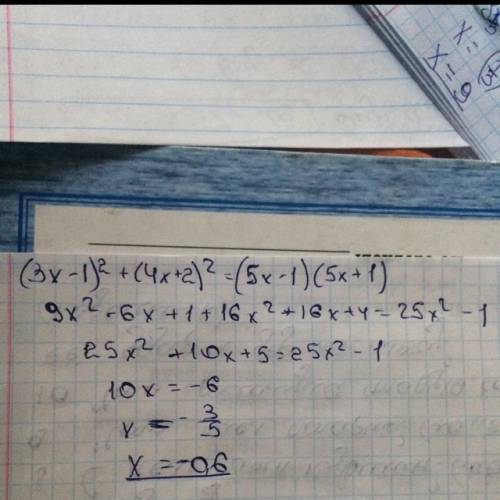 x =
x = 9
(3x-1)² + (4x+2)² = (5x-1)(5x+1)
9x² - 6x + 1 + 16x² + 16x + 4 = 25x² - 1
25x² + 10x + 5 = 25x² - 1
10x = -6
x = - 3/5
x = -0,6